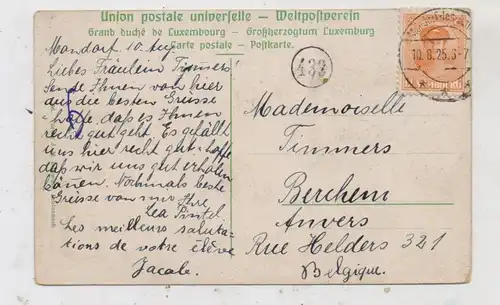 Union postale universelle - Weltpostverein
Grand duché de Luxembourg - Großherzogtum Luxemburg
Carte postale - Postkarte.
10.8.25.6-7
433
Mondorf 10 Aug.
Liebes Fräulein Timmers!
Sende Ihnen von hier
aus die besten Grüsse
hoffe, das es Ihnen
recht gut geht. Es gefällt
uns hier recht gut u. hoffe
daß wir uns gut erholen
können. Nochmals beste
Grüsse von Ihre
Lea
Les meilleurs saluta-
tions de votre élève
Jacole.
Mademoiselle
Timmers
Berchem
Anvers
Rue Helders 321
Belgique.